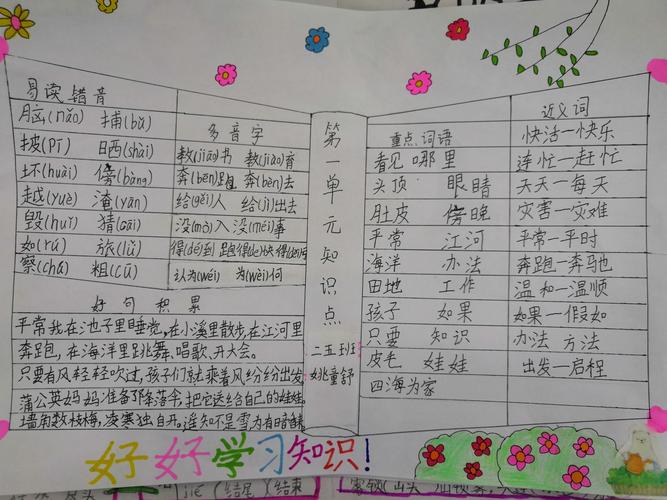 易读错音
脑(nǎo) 捕(bǔ)
披(pī) 晒(shài)
坏(huài) 傍(bàng)
越(yuè) 淹(yān)
毁(huǐ) 猜(cāi)
如(rú) 旅(lǚ)
察(chá) 粗(cū)
多音字
教(jiāo)书 教(jiào)育
奔(bēn)跑 奔(bèn)去
给(gěi)人 给(jǐ)出去
没(mò)入 没(méi)事
得(dé)到 跑得(de)快 得(děi)
认为(wéi) 为(wèi)何
好句积累
平常我在池子里睡觉,在小溪里散步,在江河里
奔跑,在海洋里跳舞、唱歌、开大会。
只要有风轻轻吹过,孩子们就乘着风纷纷出发
蒲公英妈妈准备了降落伞,把它送给自己的娃娃。
墙角数枝梅,凌寒独自开。遥知不是雪,为有暗
第一单元知识点
二五班
姚童舒
重点词语
看见 哪里
头顶 眼睛
肚皮 傍晚
平常 江河
海洋 办法
田地 工作
孩子 如果
只要 知识
皮毛 娃娃
四海为家
近义词
快活一快乐
连忙一赶忙
天天一每天
灾害一灾难
平常一平时
奔跑一奔马也
温和一温顺
如果一假如
办法 方法
出发一启程
好好学习知识!
(结尾) (结束